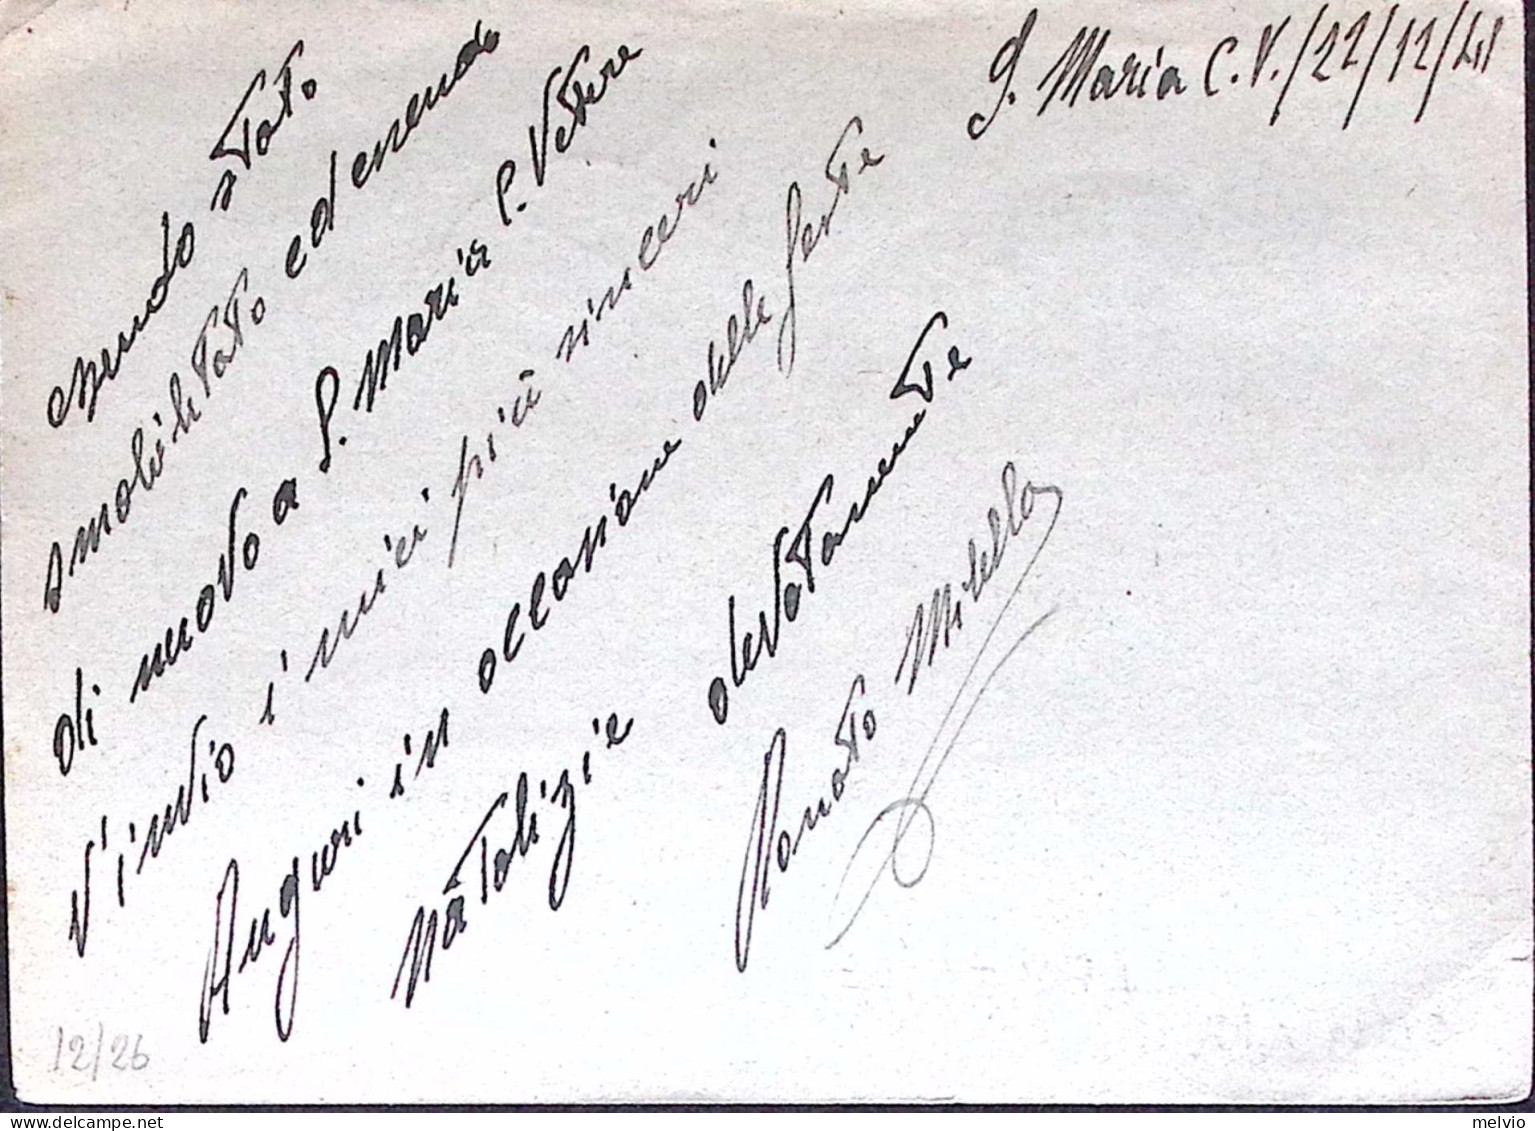 S. Maria C.V./22/12/41
essendo stato
smobilitato ed essendo
di nuovo a S. Maria C. Vetere
v'invio i miei più sinceri
Auguri in occasione delle feste
Natalizie devotamente
Renato Milella
12/26
melvio